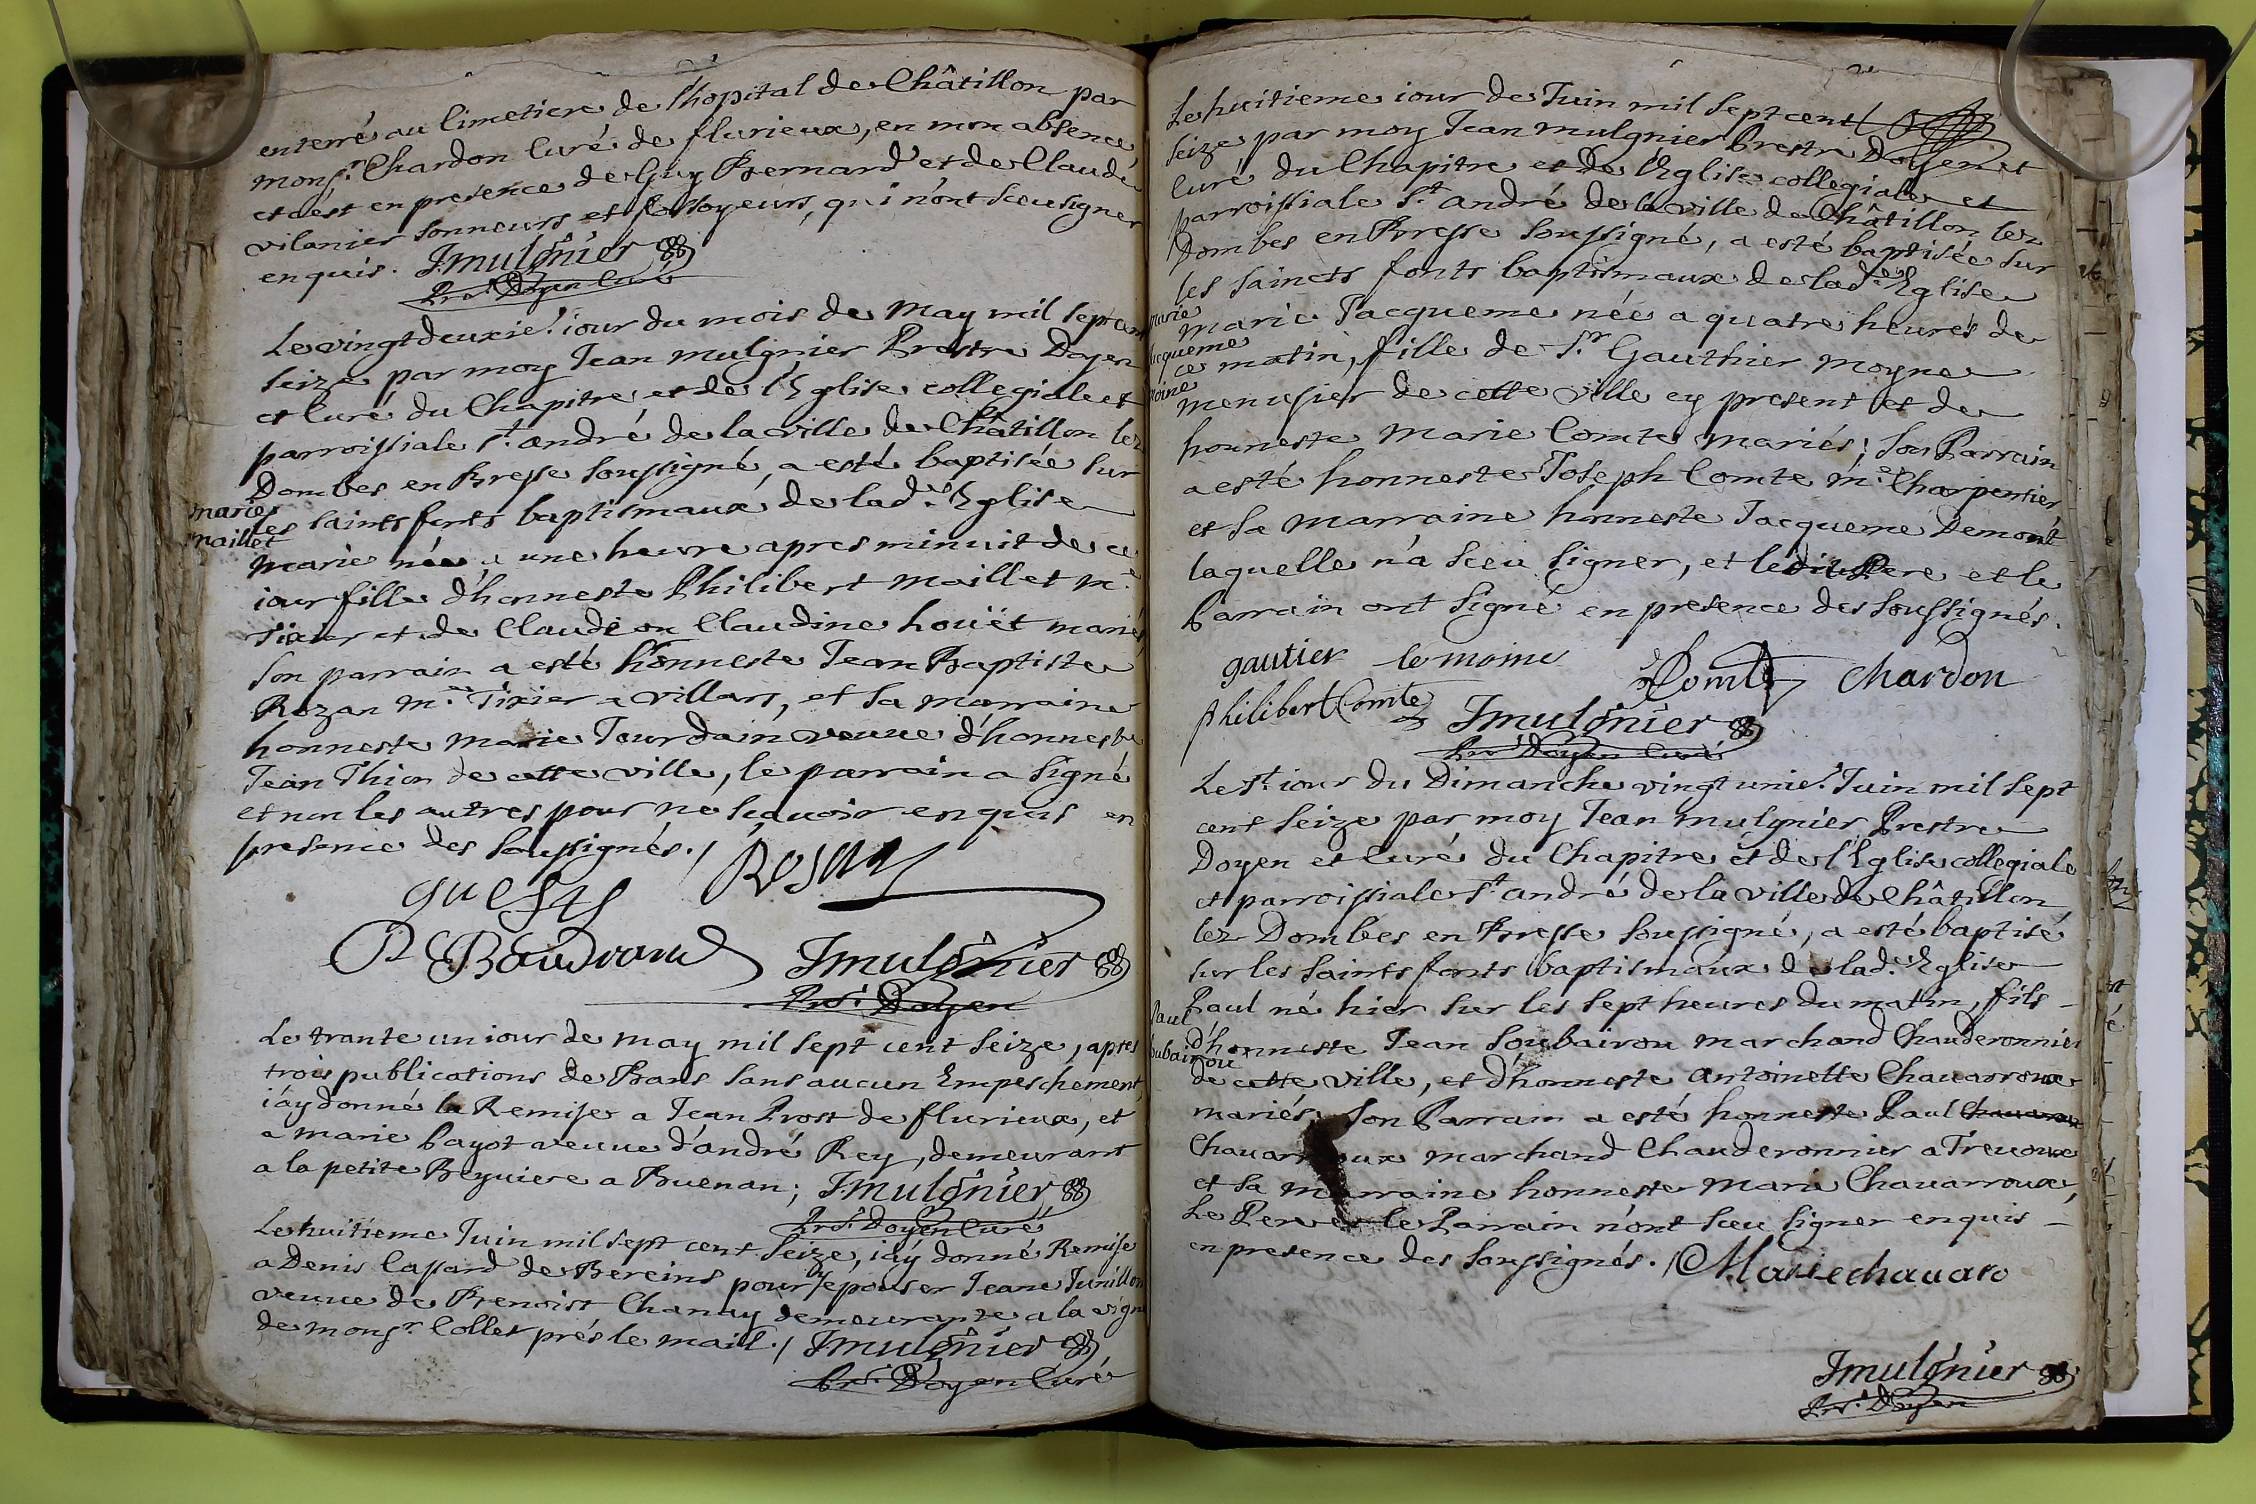 enterré au Cimetiere de l'hopital de Châtillon par
mons.r Chardon Curé de flurieux, en mon absence,
et c'est en presence de Guy Bernard et de Claude
vilanier sonneurs et fossoyeurs, qui n'ont sceu signer
enquis. Jmulgnier
Prê. Doyen Curé
Le vingt deuxie.e iour du mois de May mil sept cent
seize par moy Jean mulgnier Prestre Doyen
et Curé du Chapitre et de l'Eglise collegiale et
parroissiale s.t andré de la ville de Châtillon lez
Dombes en Bresse soussigné, a esté baptisée sur
marie
les saints fonts baptismaux de lad.e Eglise
maillet
marie née a une heure apres minuit de ce
iour fille d'honneste Philibert maillet m.e
Tixier et de Claude ou Claudine houët mariés
son parrain a esté honneste Jean Baptiste
Rozan m.e Tixier a villars, et sa marraine
honneste marie Jourdain veuve d'honneste
Jean Thion de cette ville, le parrain a signé
et non les autres pour ne sçavoir enquis en
presence des soussignés. / Rosan
Baudrand Jmulgnier
Prê. Doyen
Le trante un iour de may mil sept cent seize, apres
trois publications de Bans sans aucun Empeschement,
i'ay donné la Remise a Jean Prost de flurieux, et
a marie bayot veuve d'andré Rey, demeurant
a la petite Beyviere a Buenan; Jmulgnier
Prê. Doyen Curé
Le huitieme Juin mil sept cent seize, i'ay donné Remise
a Denis Casard de Bereins pour y epouser Jeane Junillon
veuve de Benoist Chanuy demeurante a la vigne
de mons.r Collet prés le mail. / Jmulgnier
Prê. Doyen Curé
Le huitieme iour de Juin mil sept cent
seize par moy Jean mulgnier Prestre Doyen et
Curé du Chapitre et de l'Eglise collegiale et
parroissiale s.t andré de la ville de Châtillon lez
Dombes en Bresse soussigné, a esté baptisée sur
les saincts fonts baptismaux de lad.e Eglise
marie
marie Jacqueme née a quatre heures de
Jacqueme
ce matin, fille de s.r Gauthier moyne
moine
menusier de cette ville cy present et de
honneste marie Comte mariés; son Parrain
a esté honneste Joseph Comte m.e Charpentier
et sa marraine honneste Jacqueme Demont
laquelle n'a sceu signer, et ledit Pere et le
Parrain ont signé en presence des soussignés.
gautier le moine J Comte Chardon
philibert Comte Jmulgnier
Prê. Doyen Curé
Le s.t iour du Dimanche vingt unie.e Juin mil sept
cent seize par moy Jean mulgnier Prestre
Doyen et Curé du Chapitre et de l'Eglise collegiale
et parroissiale s.t andré de la ville de Châtillon
lez Dombes en Bresse soussigné, a esté baptisé
sur les saints fonts baptismaux de lad.e Eglise
Paul né hier sur les sept heures du matin, fils
Paul
d'honneste Jean soubairou marchand Chauderonnier
soubairou
de cette ville, et d'honneste antoinette Chavarroux
mariés, son Parrain a esté honneste Paul
Chavarroux marchand Chauderonnier a Trevoux
et sa marraine honneste marie Chavarroux,
Le Pere et le Parrain n'ont sceu signer enquis
en presence des soussignés. / Marie chavaro
Jmulgnier
Prê. Doyen